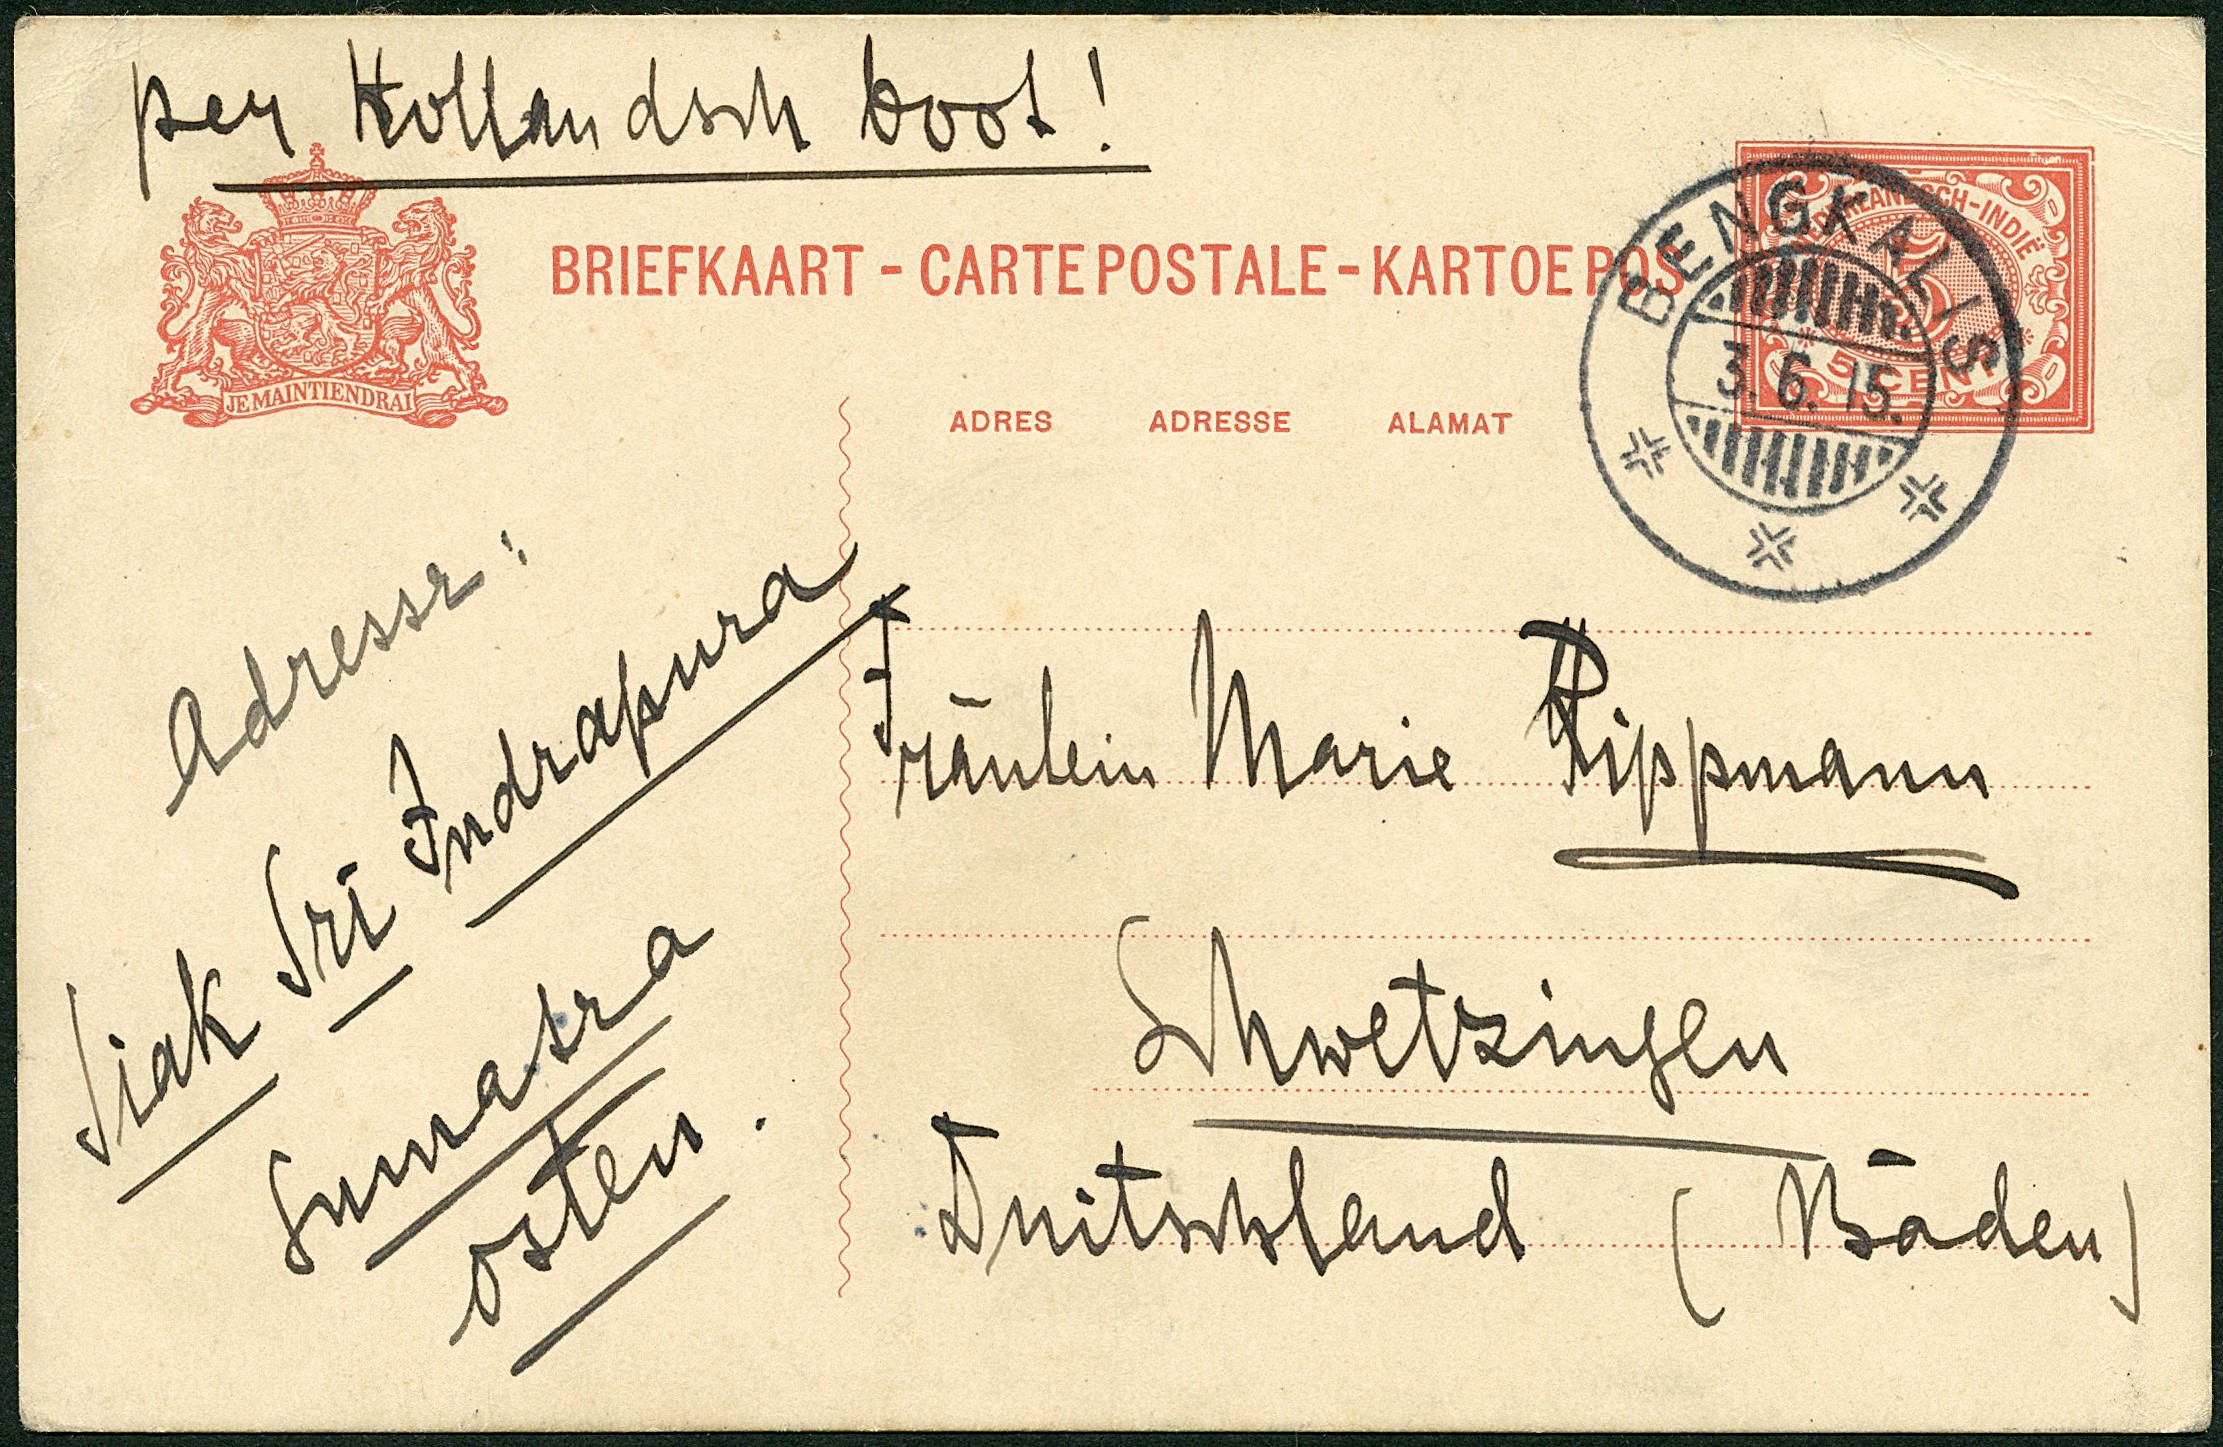 per Hollandsch boot!
JE MAINTIENDRAI
BRIEFKAART - CARTE POSTALE - KARTOE POS
NEDERLANDSCH-INDIË
5
5 CENT
BENGKALIS
3.6.15.
ADRES ADRESSE ALAMAT
Adresse:
Siak Sri Indrapura
Sumatra
Osten.
Fräulein Marie Rippmann
Schwetzingen
Duitschland (Baden)